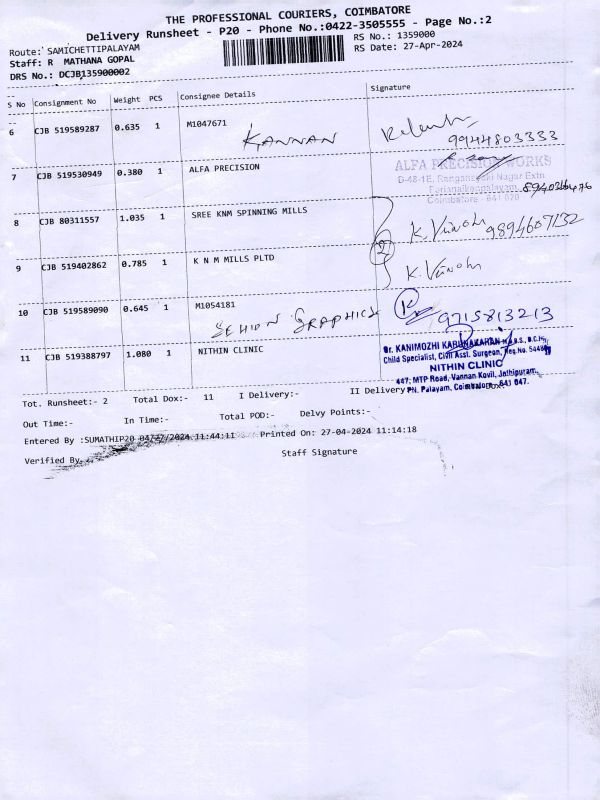 THE PROFESSIONAL COURIERS, COIMBATORE
Delivery Runsheet - P20 - Phone No.:0422-3505555 - Page No.:2
Route: SAMICHETTIPALAYAM
RS No.: 1359000
Staff: R MATHANA GOPAL
RS Date: 27-Apr-2024
DRS No.: DCJB135900002
S No Consignment No Weight PCS Consignee Details Signature
6 CJB 519589287 0.635 1 M1047671
KANNAN
9944803333
7 CJB 519530949 0.380 1 ALFA PRECISION
ALFA PRECISION WORKS
D-48-1E, Nagar Extn
Coimbatore - 641 020
8 CJB 80311557 1.035 1 SREE KNM SPINNING MILLS
K. Vinoh 9894607132
9 CJB 519402862 0.785 1 K N M MILLS PLTD
K. Vinoh
10 CJB 519589090 0.645 1 M1054181
SEHION GRAPHICS
9715813213
11 CJB 519388797 1.080 1 NITHIN CLINIC
Dr. KANIMOZHI KARUNAKARAN M.B.B.S., D.C.H.,
Child Specialist, Civil Asst. Surgeon, Reg.No.
NITHIN CLINIC
447, MTP Road, Vannan Kovil, Jothipuram,
PN. Palayam, Coimbatore- 641 047.
Tot. Runsheet:- 2 Total Dox:- 11 I Delivery:- II Delivery
Out Time:- In Time:- Total POD:- Delvy Points:-
Entered By :SUMATHIP20 04/27/2024 11:44:11 Printed On: 27-04-2024 11:14:18
Verified By
Staff Signature